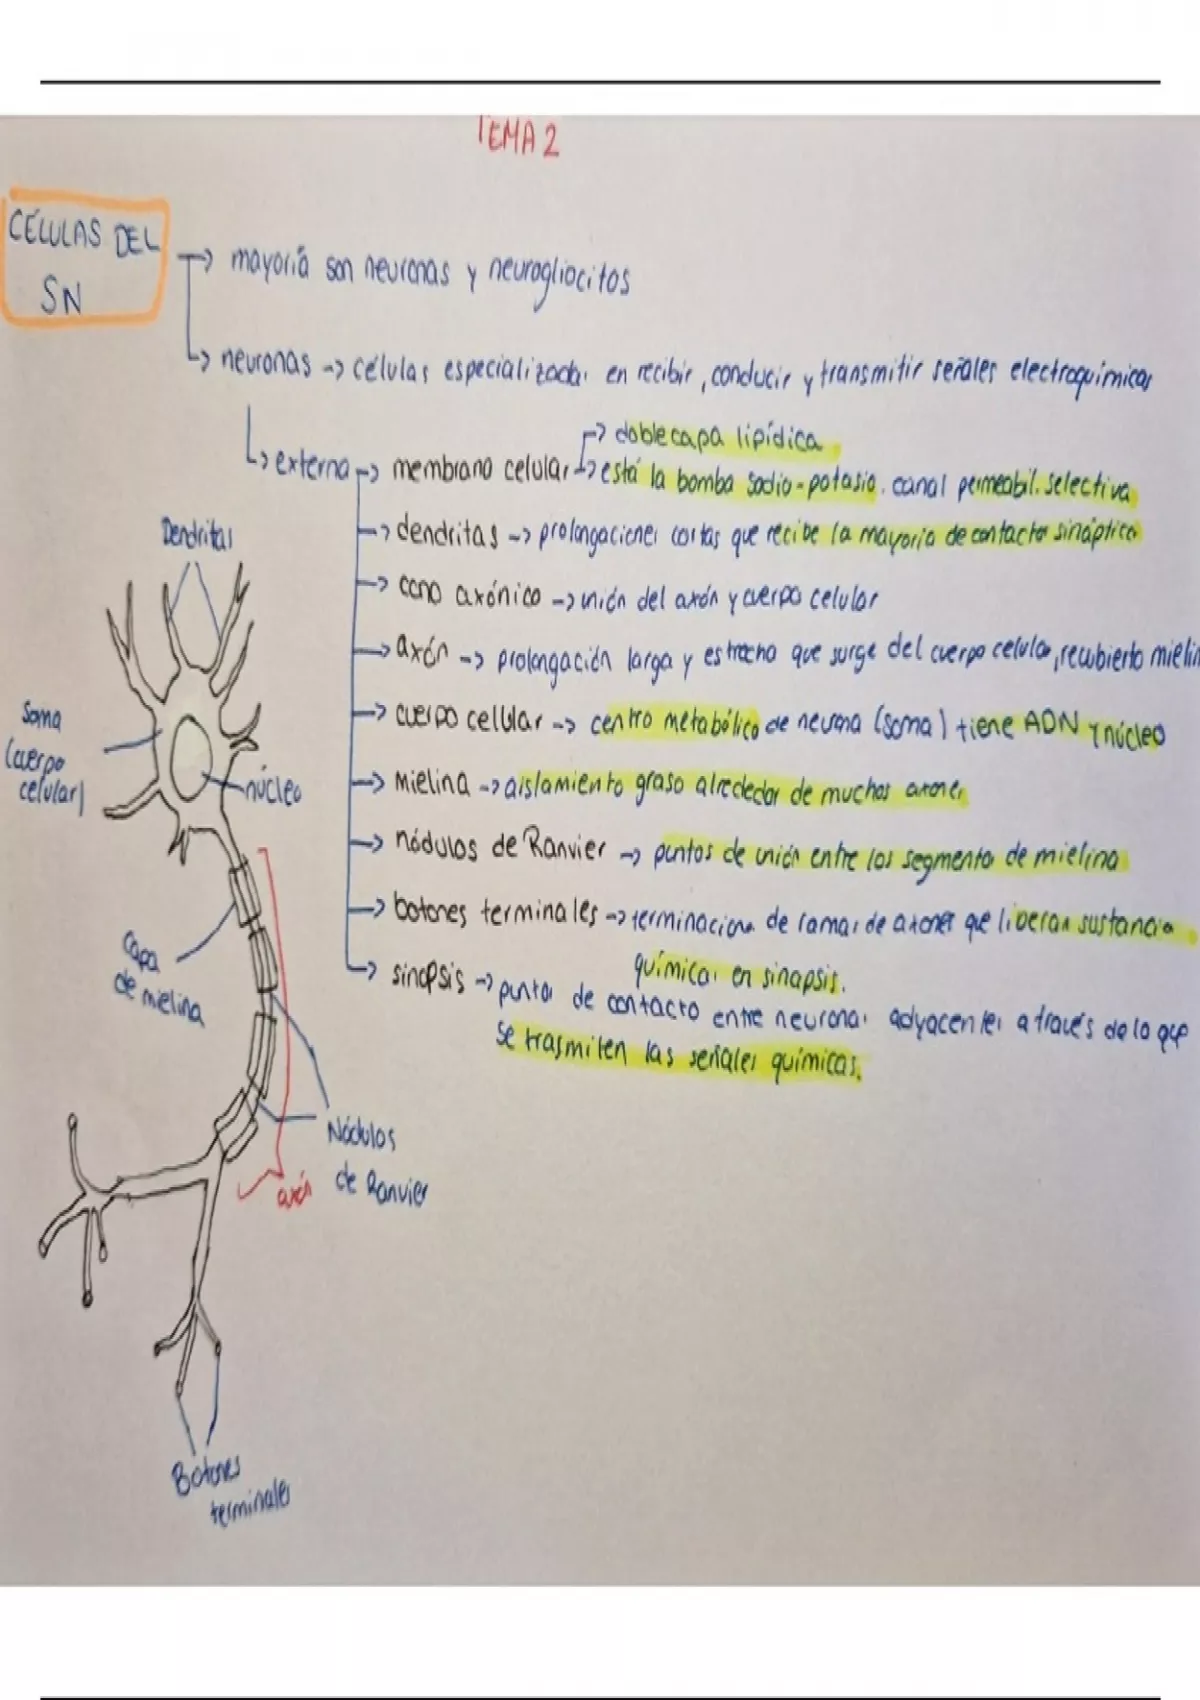 TEMA 2
CÉLULAS DEL
SN
→ mayoría son neuronas y neurogliocitos
→ neuronas → células especializadas en recibir, conducir y transmitir señales electroquímicas
→ externa → membrana celular → doble capa lipídica
→ está la bomba sodio-potasio. canal permeabil. selectiva
→ dendritas → prolongaciones cortas que recibe la mayoría de contactos sinápticos
→ cono axónico → unión del axón y cuerpo celular
→ axón → prolongación larga y estrecha que surge del cuerpo celular, recubierto mielin
→ cuerpo celular → centro metabólico de neurona (soma) tiene ADN y núcleo
→ mielina → aislamiento graso alrededor de muchos axones
→ nódulos de Ranvier → puntos de unión entre los segmentos de mielina
→ botones terminales → terminaciones de ramas de axones que liberan sustancia
químicas en sinapsis.
→ sinapsis → puntos de contacto entre neuronas adyacentes a través de lo que
se trasmiten las señales químicas.
Dendritas
Soma
(cuerpo
celular)
núcleo
Capa
de mielina
Nódulos
de Ranvier
axón
Botones
terminales